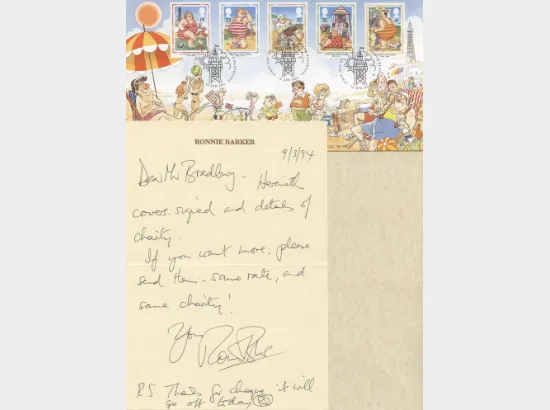 RONNIE BARKER
9/3/94
Dear Mr Bradbury - Herewith
covers signed and details of
charity.
If you want more, please
send them - same rate, and
same charity!
Yours
P.S. Thanks for cheque it will
go off today